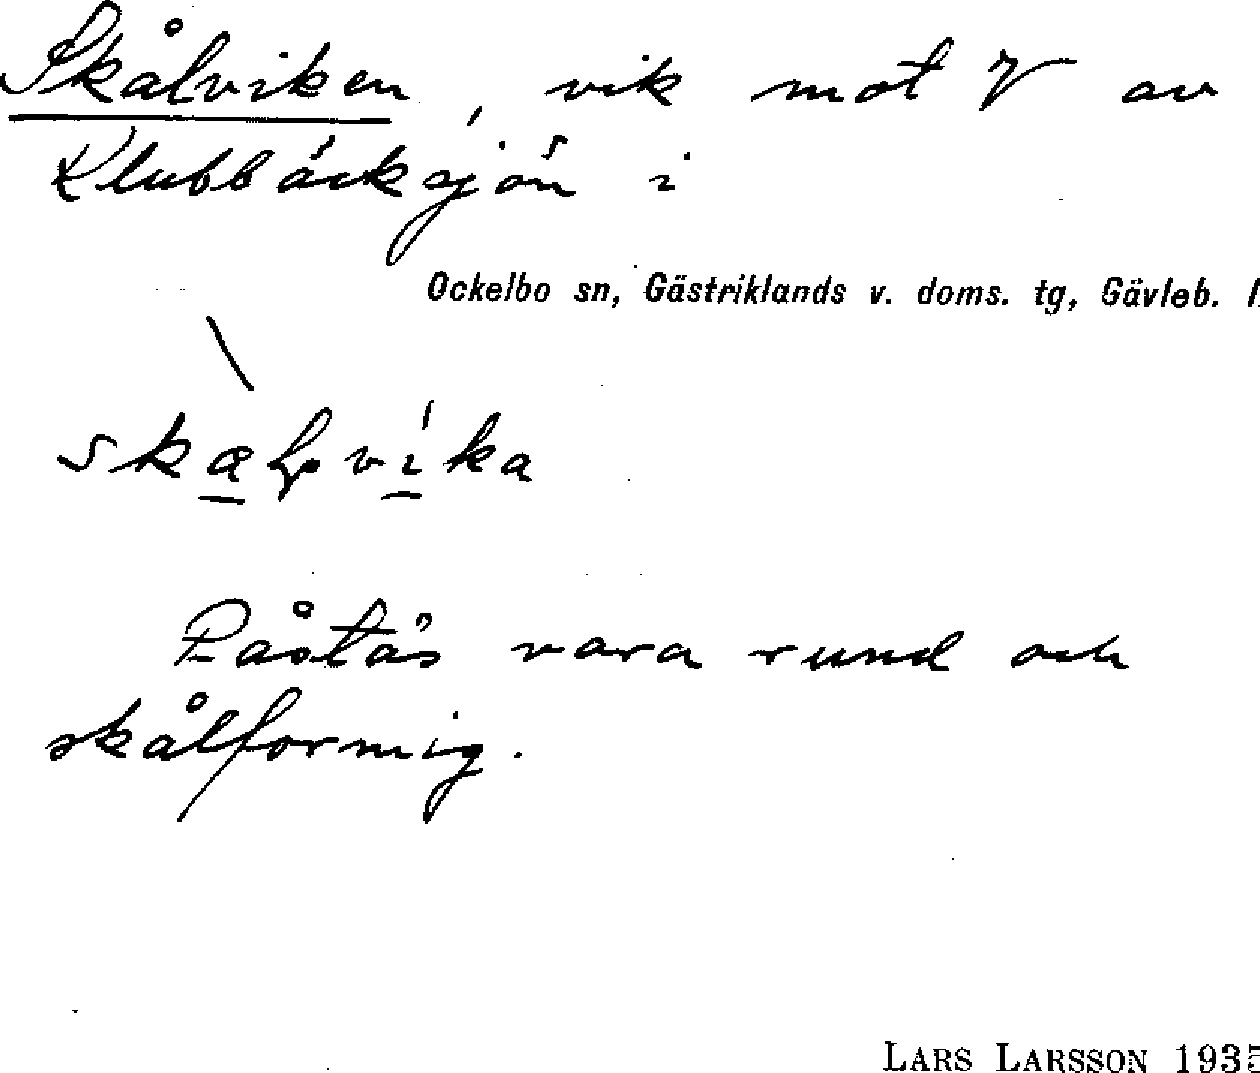 Skålviken, vik mot V av
Klubbäcksjön i
Ockelbo sn, Gästriklands v. doms. tg, Gävleb. l.
Påstås vara rund och
skålformig.
LARS LARSSON 1935